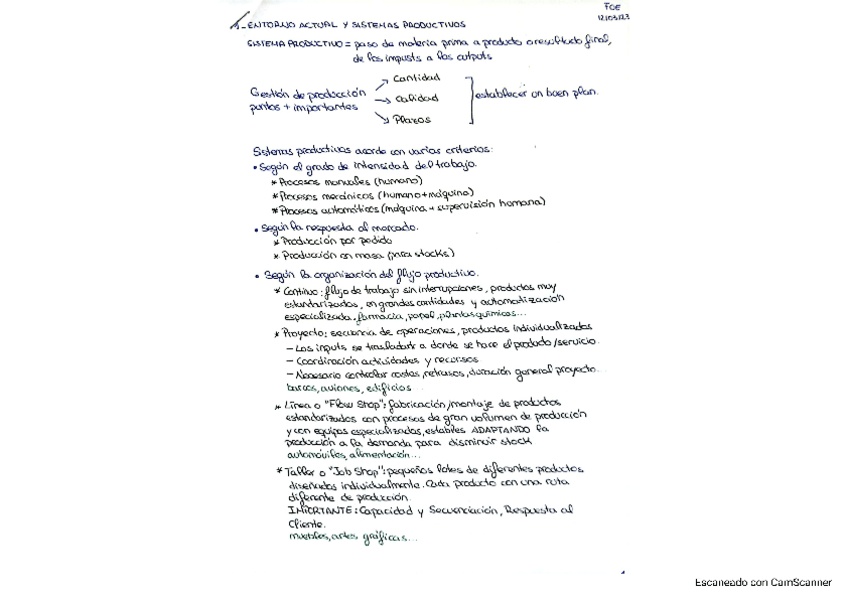 FOE
12/03/23
1.- ENTORNO ACTUAL Y SISTEMAS PRODUCTIVOS
SISTEMA PRODUCTIVO = paso de materia prima a producto o resultado final,
de los inputs a los outputs
Gestión de producción
puntos + importantes
Cantidad
Calidad
Plazos
establecer un buen plan.
Sistemas productivos acorde con varios criterios:
• Según el grado de intensidad del trabajo.
* Procesos manuales (humano)
* Procesos mecánicos (humano+máquina)
* Procesos automáticos (máquina + supervisión humana)
• Según la respuesta al mercado.
* Producción por pedido
* Producción en masa (para stocks)
• Según la organización del flujo productivo.
* Continuo: flujo de trabajo sin interrupciones, productos muy
estandarizados, en grandes cantidades y automatización
especializada. farmacia, papel, plantas químicas...
* Proyecto: secuencia de operaciones, productos individualizados
- Los inputs se trasladan a donde se hace el producto/servicio.
- Coordinación actividades y recursos
- Necesario controlar costes, retrasos, duración general proyecto.
barcos, aviones, edificios
* Línea o "Flow Shop": fabricación/montaje de productos
estandarizados con procesos de gran volumen de producción
y con equipos especializados, estables ADAPTANDO la
producción a la demanda para disminuir stock
automóviles, alimentación...
* Taller o "Job Shop": pequeños lotes de diferentes productos
diseñados individualmente. Cada producto con una ruta
diferente de producción.
IMPORTANTE: Capacidad y Secuenciación, Respuesta al
Cliente.
muebles, artes gráficas...
Escaneado con CamScanner